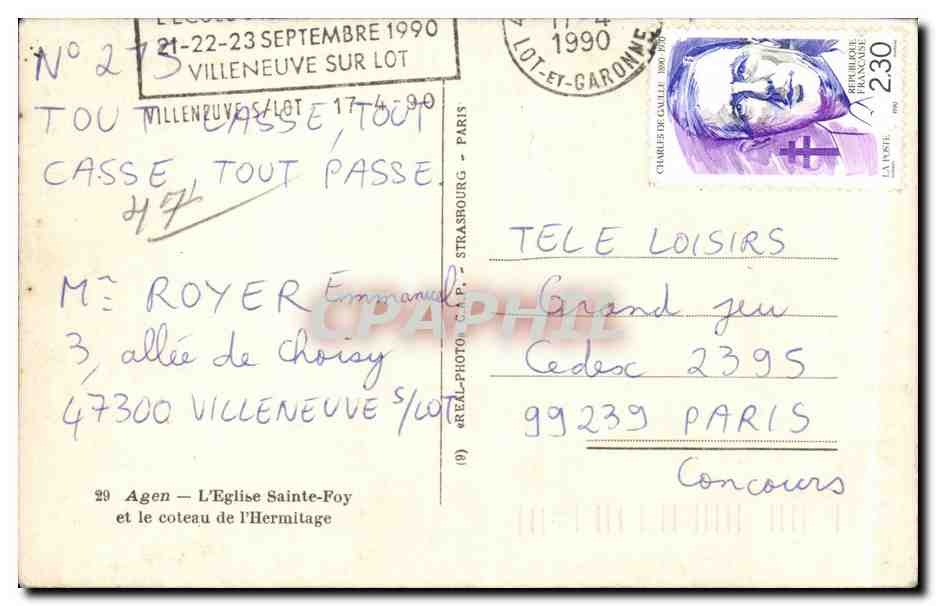 21-22-23 SEPTEMBRE 1990
VILLENEUVE SUR LOT
VILLENEUVE S/LOT 17-4 90
17-4
1990
LOT-ET-GARONNE
CHARLES DE GAULLE 1890-1970
REPUBLIQUE
FRANCAISE
2,30
LA POSTE
1990
N° 273
TOUT LASSE, TOUT
CASSE, TOUT PASSE.
47
Mr ROYER Emmanuel
3, allée de Choisy
47300 VILLENEUVE S/LOT
29 Agen — L'Eglise Sainte-Foy
et le coteau de l'Hermitage
(9) «REAL-PHOTO» C.A.P. - STRASBOURG - PARIS
TELE LOISIRS
Grand jeu
Cedex 2395
99239 PARIS
Concours
CPAPHIL